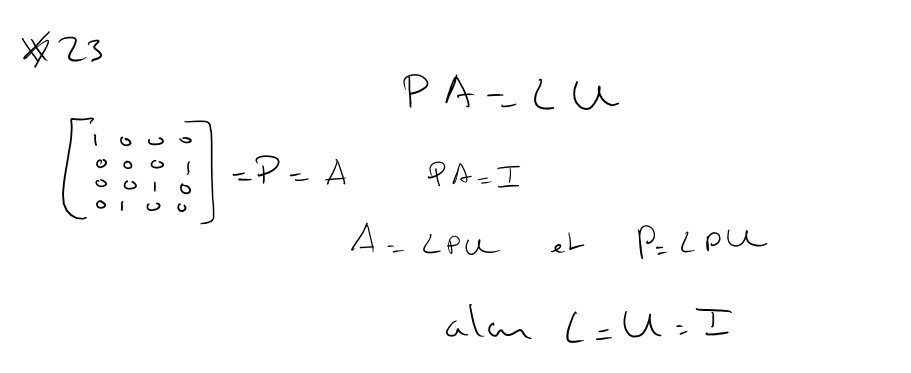 ※ 23
PA = LU
[ 1 0 0 0
0 0 0 1
0 0 1 0
0 1 0 0 ] = P = A PA = I
A = LPU et P = LPU
alors L = U = I